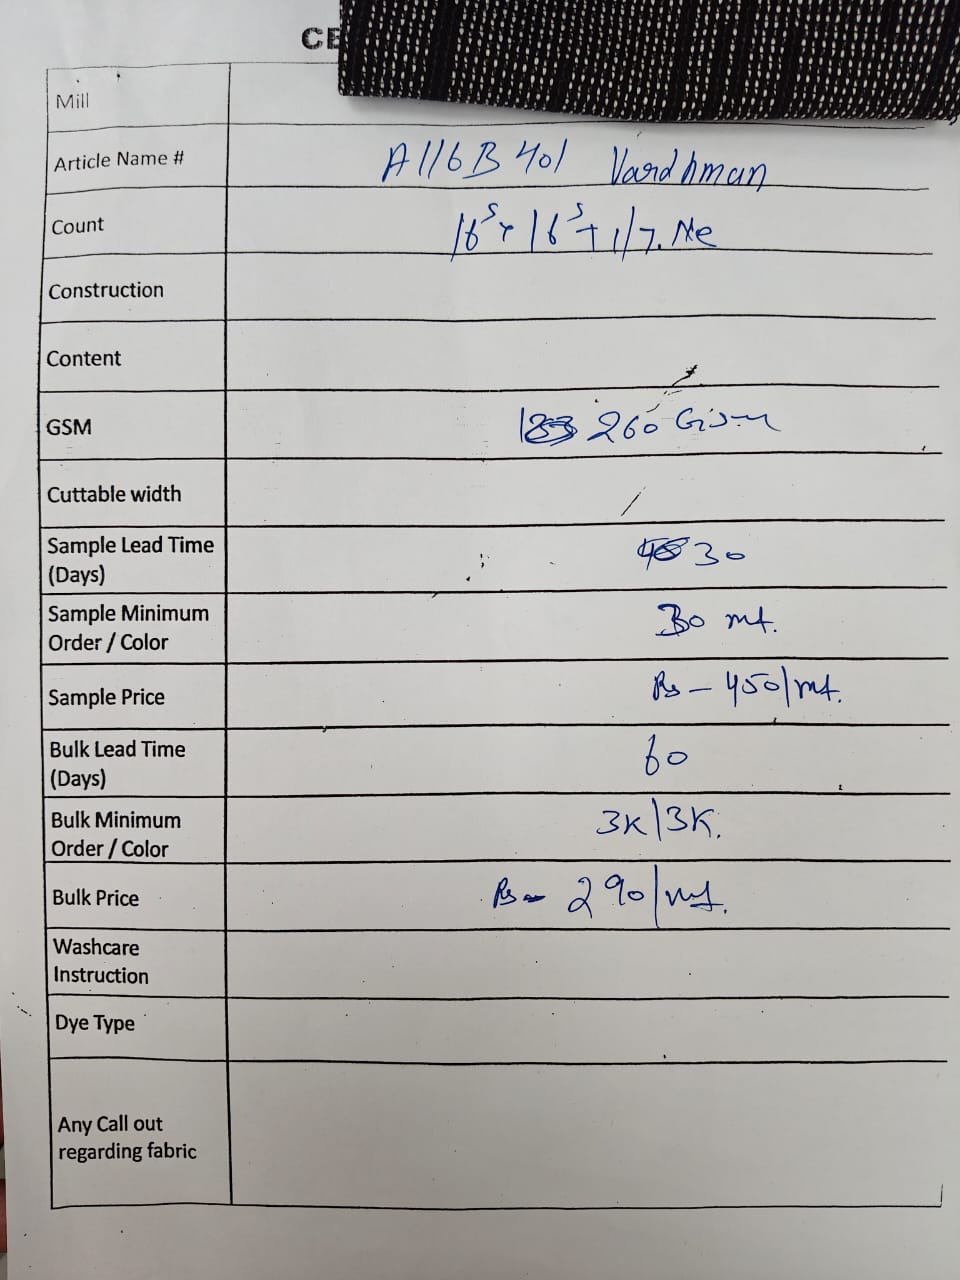 CE
Mill
Article Name # A116B401 Vardhman
Count 16s x 16s + 1/7. Ne
Construction
Content
GSM 260 Gsm
Cuttable width
Sample Lead Time
(Days) 30
Sample Minimum
Order / Color 30 mt.
Sample Price Rs - 450/mt.
Bulk Lead Time
(Days) 60
Bulk Minimum
Order / Color 3K/3K.
Bulk Price Rs - 290/mt.
Washcare
Instruction
Dye Type
Any Call out
regarding fabric